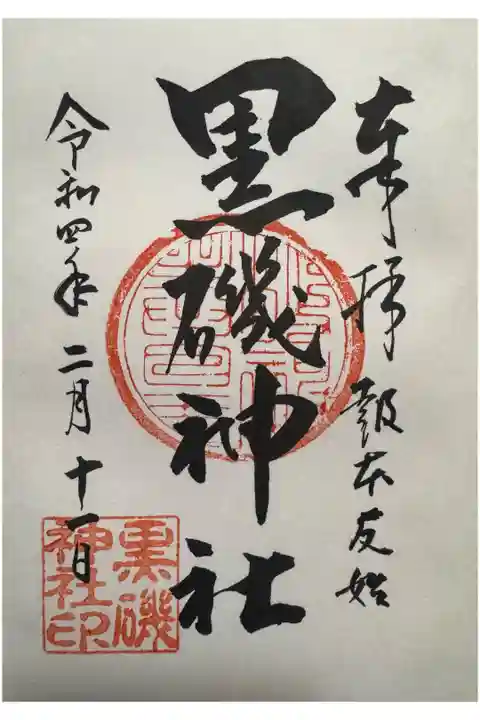 奉拝 報本反始
黒磯神社
令和四年二月十一日
黒磯
神社印